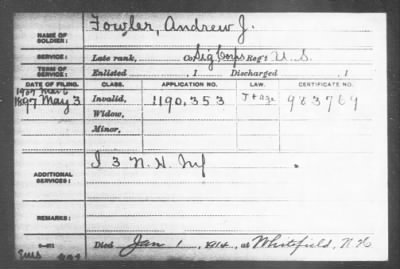 NAME OF SOLDIER: Fowler, Andrew J.
SERVICE: Late rank, Co. Sig Corps Reg't U. S.
TERM OF SERVICE: Enlisted , 1 Discharged , 1
DATE OF FILING. CLASS. APPLICATION NO. LAW. CERTIFICATE NO.
1907
1897 May 3 Invalid, 1190,353 983769
Widow,
Minor,
ADDITIONAL SERVICES: I 3 N. H. Inf
REMARKS:
Died Jan 1, 1914, at Whitefield, N. H.